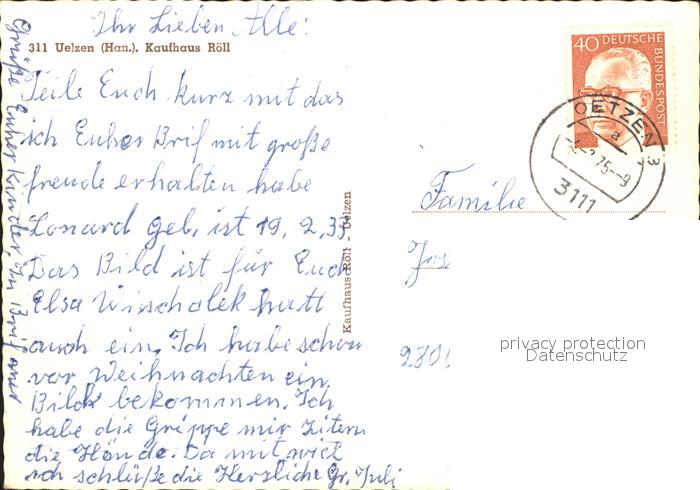 Ihr Lieben Alle!
311 Uelzen (Han.). Kaufhaus Röll
Teile Euch kurz mit das
ich Euher Brif mit große
freude erhalten habe
Lonard geb. ist 19. 2. 33
Das Bild ist für Euch
Elsa Wischolek hatt
auch ein. Ich habe schon
vor Weihnachten ein
Bild bekommen. Ich
habe die Grippe mir Zitern
die Hände. Da mit will
ich schlüße die Herzliche Gr. Juli
Grüße Euher Kinder
Brif
Kaufhaus Röll - Uelzen
40 DEUTSCHE BUNDESPOST
OETZEN
a
75-9
3111
Familie
Jos
280
privacy protection
Datenschutz